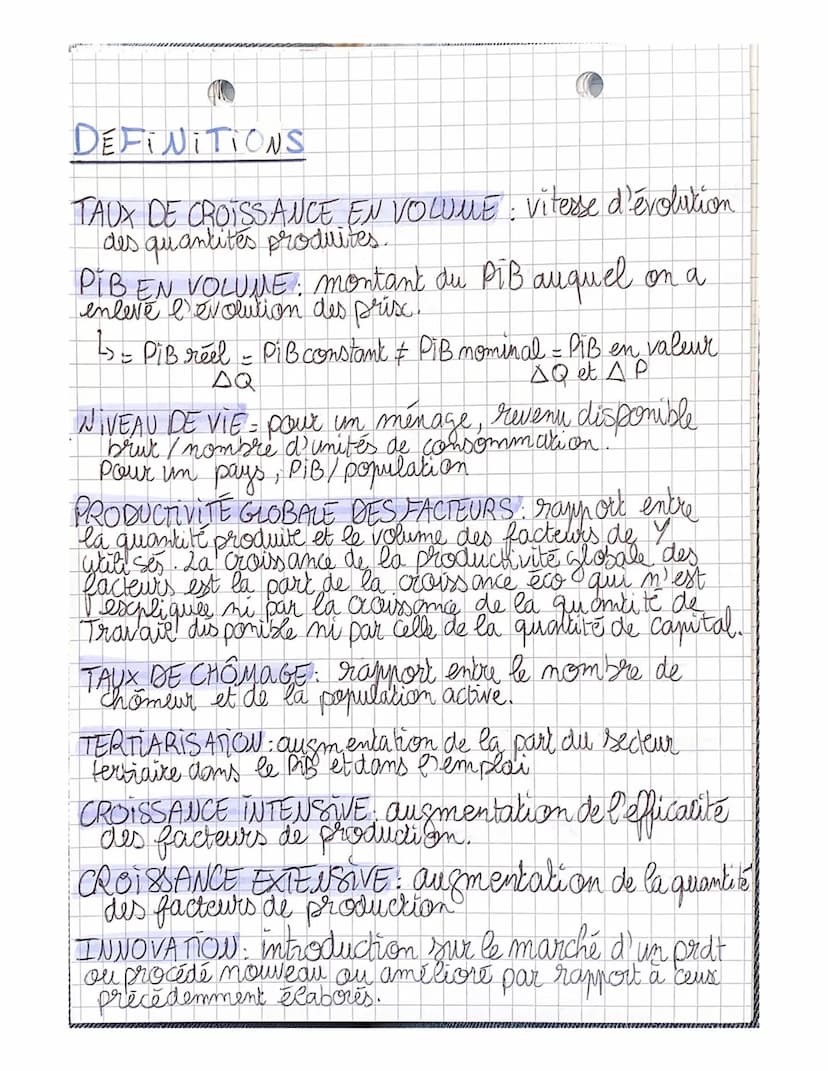 DÉFINITIONS
TAUX DE CROISSANCE EN VOLUME : vitesse d'évolution
des quantités produites.
PIB EN VOLUME : montant du PIB auquel on a
enlevé l'évolution des prix.
↳ = PIB réel = PIB constant ≠ PIB nominal = PIB en valeur
ΔQ ΔQ et ΔP
NIVEAU DE VIE = pour un ménage, revenu disponible
brut / nombre d'unités de consommation.
Pour un pays, PIB / population
PRODUCTIVITÉ GLOBALE DES FACTEURS : rapport entre
la quantité produite et le volume des facteurs de Y
utilisés. La croissance de la productivité globale des
facteurs est la part de la croissance éco qui n'est
expliquée ni par la croissance de la quantité de
Travail disponible ni par celle de la quantité de capital.
TAUX DE CHÔMAGE : rapport entre le nombre de
chômeur et de la population active.
TERTIARISATION : augmentation de la part du secteur
tertiaire dans le PIB et dans l'emploi
CROISSANCE INTENSIVE : augmentation de l'efficacité
des facteurs de production.
CROISSANCE EXTENSIVE : augmentation de la quantité
des facteurs de production
INNOVATION : introduction sur le marché d'un prdt
ou procédé nouveau ou amélioré par rapport à ceux
précédemment élaborés.